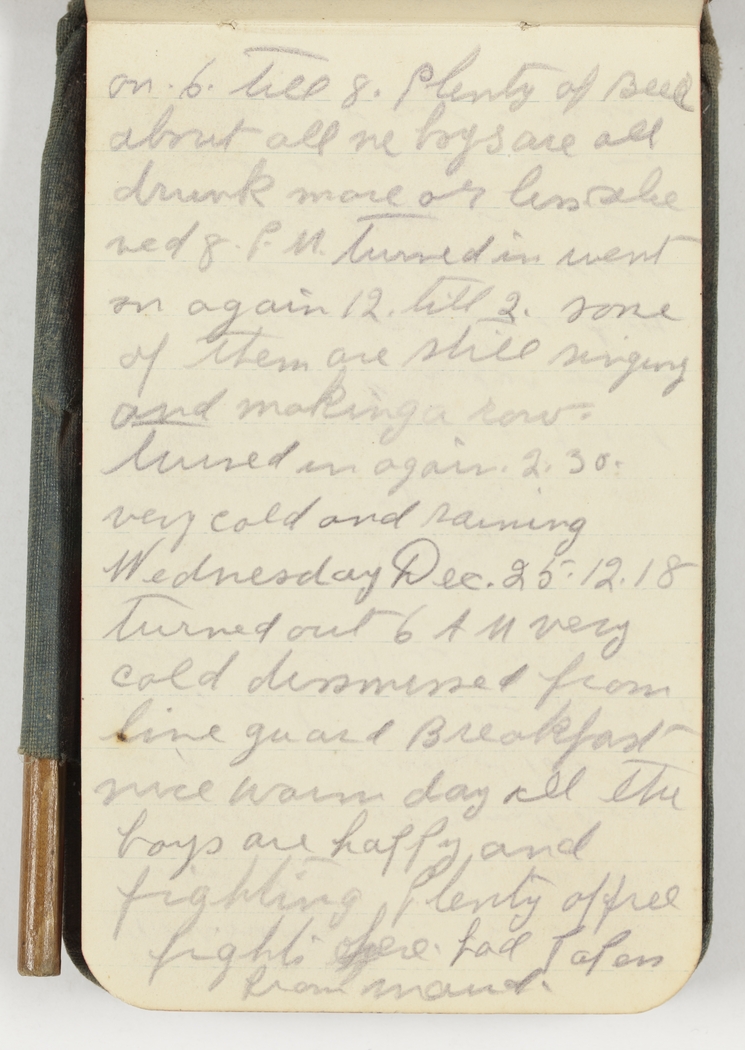 on. 6. Till 8. Plenty of Beer
about all ne boys are all
drunk more or less relie
ved 8. P.M. Turned in went
on again 12. till 2. some
of them are still singing
and making a row.
Turned in again. 2.30.
very cold and raining
Wednesday Dec. 25.12.18
Turned out 6 AM very
cold dissmissed from
line guard Breakfast
nice warm day all the
boys are happy and
fighting Plenty of free
fights here. had
from